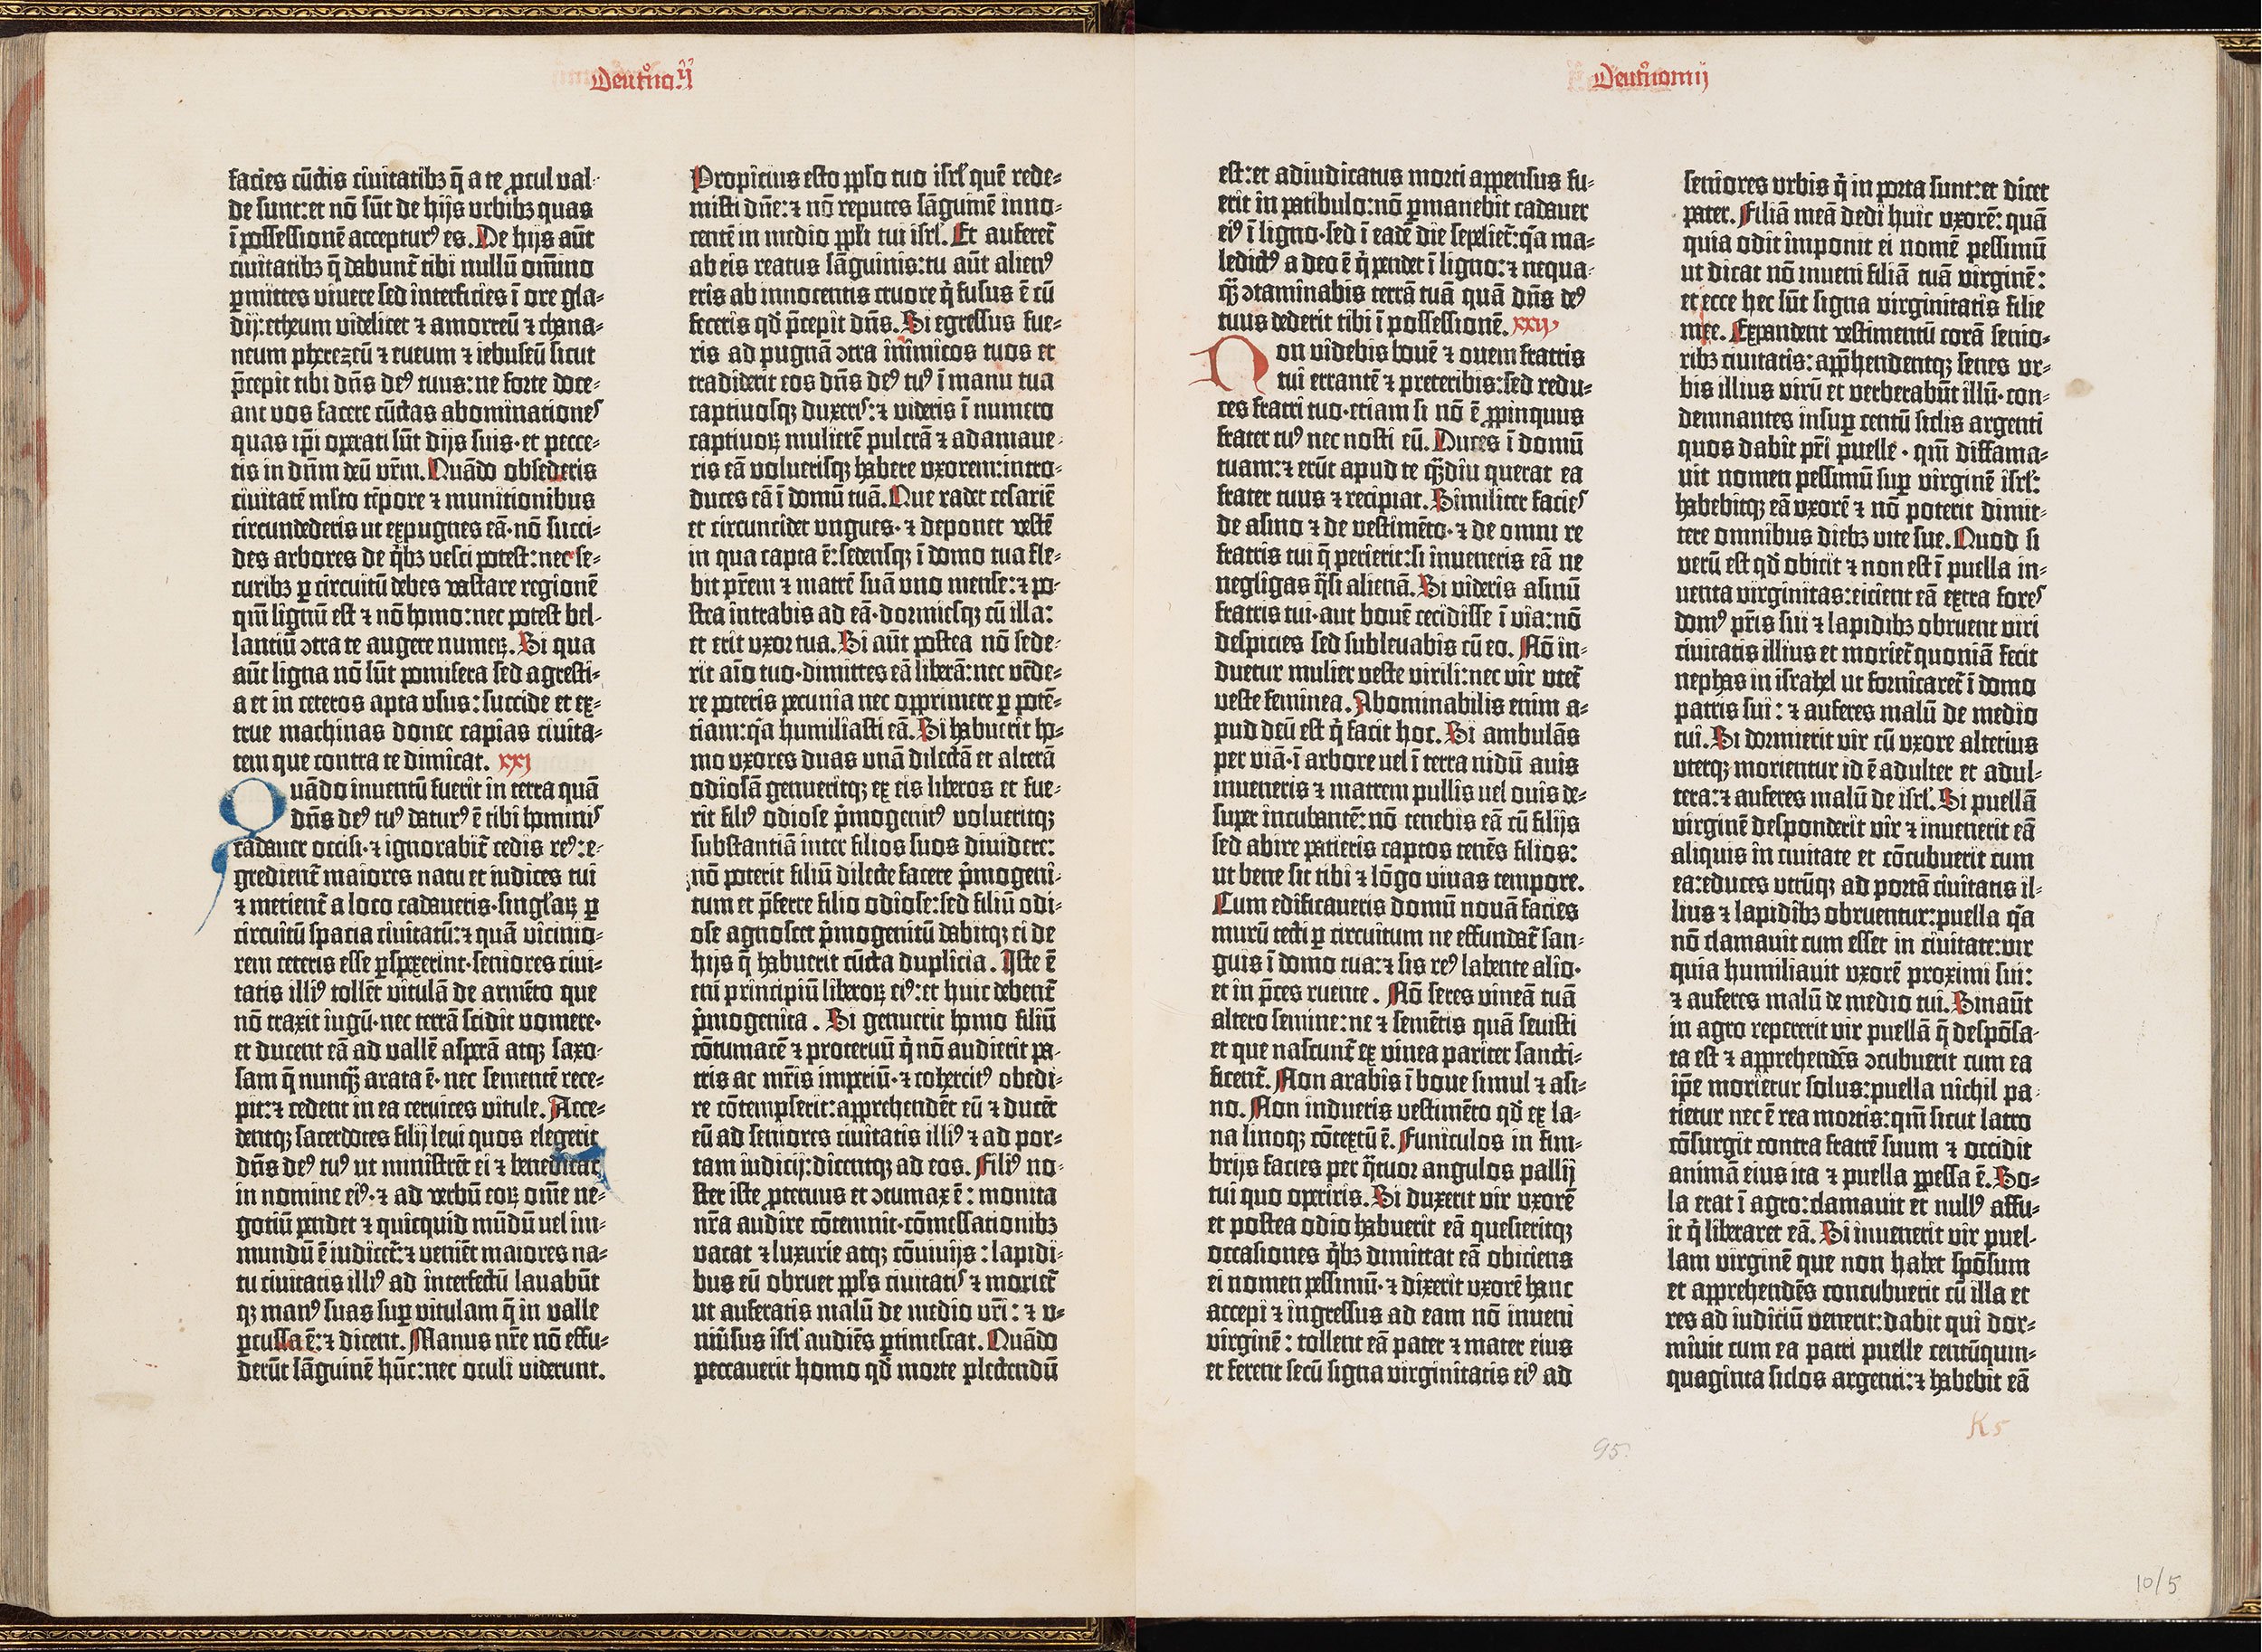 Deut̉no.ij̉
facies cūctis ciuitatibꝫ q̄ a te ꝓcul val-
de sunt:et nō sūt de hijs vrbibꝫ quas
ī possessionē acceptur⁹ es. De hijs aūt
ciuitatibꝫ q̄ dabunt̄ tibi nullū om̄ino
ꝑmittes viuere sed interficies ī ore gla-
dij:etheum videlicet ⁊ amorreū ⁊ chana-
neum pherezeū ⁊ eueum ⁊ iebuseū sicut
p̄cepit tibi dn̄s de⁹ tuus:ne forte doce-
ant vos facere cūctas abominationes
quas ip̄i oꝑati sūt dijs suis·et pecce-
tis in dn̄m deū vr̄m. Quādo obsederis
ciuitatē m̄lto tp̄ore ⁊ munitionibus
circundederis ut expugnes eā·nō succi-
des arbores de q̇̄bꝫ vesci potest:nec se-
curibꝫ ꝑ circuitū debes vastare regionē
qm̄ lignū est ⁊ nō homo:nec potest bel-
lantiū ↄtra te augere numeꝝ. Si qua
aūt ligna nō sūt pomifera sed agresti-
a et in ceteros apta vsus:succide et ex-
true machinas donec capias ciuita-
tem que contra te dimicat. xxj
Quādo inuentū fuerit in terra quā
dn̄s de⁹ tu⁹ datur⁹ ē tibi hominis
cadauer occisi·⁊ ignorabit̄ cedis re⁹:e-
gredient̄ maiores natu et iudices tui
⁊ metient̄ a loco cadaueris·singl̓aꝝ ꝑ
circuitū spacia ciuitatū:⁊ quā vicinio-
rem ceteris esse ꝑspexerint·seniores ciui-
tatis illi⁹ tollēt vitulā de armēto que
nō traxit iugū·nec terrā scidit vomere·
et ducent eā ad vallē asperā atqꝫ saxo-
sam q̄ nunqꝫ̄ arata ē·nec sementē rece-
pit:⁊ cedent in ea ceruices vitule. Acce-
dentqꝫ sacerdotes filij leui quos elegerit
dn̄s de⁹ tu⁹ ut ministrēt ei ⁊ benedicāt
in nomine ei⁹·⁊ ad verbū eoꝝ om̄e ne-
gotiū pendet ⁊ quicquid mūdū uel im-
mundū ē iudicet̄:⁊ veniēt maiores na-
tu ciuitatis illi⁹ ad interfectū lauabūt
qꝫ man⁹ suas suꝑ vitulam q̄ in valle
ꝑcussa ē:⁊ dicent. Manus nr̄e nō effu-
derūt sāguinē hūc:nec oculi viderunt.
Propicius esto ppl̓o tuo isrl̓ quē rede-
misti dn̄e:⁊ nō reputes sāguinē inno-
centē in medio ppl̓i tui isrl̓. Et auferet̄
ab eis reatus sāguinis:tu aūt alien⁹
eris ab innocentis cruore q̇ fusus ē cū
feceris qđ p̄cepit dn̄s. Si egressus fue-
ris ad pugnā ↄtra inimicos tuos et
tradiderit eos dn̄s de⁹ tu⁹ ī manu tua
captiuosqꝫ duxeris:⁊ videris ī numero
captiuoꝝ mulierē pulcrā ⁊ adamaue-
ris eā voluerisqꝫ habere vxorem:intro-
duces eā ī domū tuā. Que radet cesariē
et circuncidet vngues·⁊ deponet vestē
in qua capta ē:sedensqꝫ ī domo tua fle-
bit pr̄em ⁊ matrē suā vno mense:⁊ po-
stea intrabis ad eā·dormiesqꝫ cū illa:
et erit vxor tua. Si aūt postea nō sede-
rit aīo tuo·dimittes eā liberā:nec vēde-
re poteris pecunia nec opprimere ꝑ potē-
tiam:q̄a humiliasti eā. Si habuerit ho-
mo vxores duas vnā dilectā et alterā
odiosā genueritqꝫ ex eis liberos et fue-
rit fili⁹ odiose p̄mogenit⁹ volueritqꝫ
substantiā inter filios suos diuidere:
nō poterit filiū dilecte facere p̄mogeni-
tum et p̄ferre filio odiose:sed filiū odi-
ose agnoscet p̄mogenitū dabitqꝫ ei de
hijs q̄ habuerit cūcta duplicia. Iste ē
eni principiū liberoꝝ ei⁹:et huic debent̄
p̄mogenita. Si genuerit homo filiū
cōtumacē ⁊ proteruū q̇ nō audierit pa-
tris ac mr̄is imperiū·⁊ cohercit⁹ obedi-
re cōtempserit:apprehendēt eū ⁊ ducēt
eū ad seniores ciuitatis illi⁹ ⁊ ad por-
tam iudicij:dicentqꝫ ad eos. Fili⁹ no-
ster iste ꝓteruus et ↄtumax ē:monita
nr̄a audire cōtemnit·cōmessationibꝫ
vacat ⁊ luxurie atqꝫ cōuiuijs:lapidi-
bus eū obruet ppl̓s ciuitatis ⁊ moriet̄
ut auferatis malū de medio vr̄i:⁊ v-
niūsus isrl̓ audiēs ꝑtimescat. Quādo
peccauerit homo qđ morte plectendū
Deut̓nomij
est:et adiudicatus morti appensus fu-
erit in patibulo:nō ꝑmanebit cadauer
ei⁹ ī ligno·sed ī eadē die sepeliet̄:q̄a ma-
ledict⁹ a deo ē q̇ pendet ī ligno:⁊ nequa-
qꝫ̄ ↄtaminabis terrā tuā quā dn̄s de⁹
tuus dederit tibi ī possessionē. xxij
Non videbis bouē ⁊ ouem fratris
tui errantē ⁊ preteribis:sed redu-
ces fratri tuo·etiam si nō ē ꝓpinquus
frater tu⁹ nec nosti eū. Duces ī domū
tuam:⁊ erūt apud te qꝫ̄diu querat ea
frater tuus ⁊ recipiat. Similiter facies
de asino ⁊ de vestimēto·⁊ de omni re
fratris tui q̄ perierit:si inueneris eā ne
negligas q̄si alienā. Si videris asinū
fratris tui·aut bouē cecidisse ī via:nō
despicies sed subleuabis cū eo. Nō in-
duetur mulier veste virili:nec vir utet̄
veste feminea. Abominabilis enim a-
pud deū est q̇ facit hoc. Si ambulās
per viā·ī arbore uel ī terra nidū auis
inueneris ⁊ matrem pullis uel ouis de-
super incubantē:nō tenebis eā cū filijs
sed abire patieris captos tenēs filios:
ut bene sit tibi ⁊ lōgo viuas tempore.
Cum edificaueris domū nouā facies
murū tecti ꝑ circuitum ne effundat̄ san-
guis ī domo tua:⁊ sis re⁹ labente alio·
et in p̄ces ruente. Nō seres vineā tuā
altero semine:ne ⁊ semētis quā seuisti
et que nascunt̄ ex vinea pariter sancti-
ficent̄. Non arabis ī boue simul ⁊ asi-
no. Non indueris vestimēto qđ ex la-
na linoqꝫ cōtextū ē. Funiculos in fim-
brijs facies per q̄tuor angulos pallij
tui quo operiris. Si duxerit vir vxorē
et postea odio habuerit eā quesieritqꝫ
occasiones q̇bꝫ dimittat eā obiciens
ei nomen pessimū·⁊ dixerit vxorē hanc
accepi ⁊ ingressus ad eam nō inueni
virginē:tollent eā pater ⁊ mater eius
et ferent secū signa virginitatis ei⁹ ad
seniores vrbis q̇ in porta sunt:et dicet
pater. Filiā meā dedi huic vxorē:quā
quia odit imponit ei nomē pessimū
ut dicat nō inueni filiā tuā virginē:
et ecce hec sūt signa virginitatis filie
mee. Expandent vestimentū corā senio-
ribꝫ ciuitatis:app̄hendentqꝫ senes vr-
bis illius virū et verberabūt illū·con-
demnantes insuꝑ centū siclis argenti
quos dabit pr̄i puelle·qm̄ diffama-
uit nomen pessimū suꝑ virginē isrl̓:
habebitqꝫ eā vxorē ⁊ nō poterit dimit-
tere omnibus diebꝫ vite sue. Quod si
verū est qđ obicit ⁊ non est ī puella in-
uenta virginitas:eicient eā extra fores
dom⁹ pr̄is sui ⁊ lapidibꝫ obruent viri
ciuitatis illius et moriet̄ quoniā fecit
nephas in israhel ut fornicaret̄ ī domo
patris sui:⁊ auferes malū de medio
tui. Si dormierit vir cū vxore alterius
vterqꝫ morientur id ē adulter et adul-
tera:⁊ auferes malū de isrl̓. Si puellā
virginē desponderit vir ⁊ inuenerit eā
aliquis in ciuitate et cōcubuerit cum
ea:educes vtrūqꝫ ad portā ciuitatis il-
lius ⁊ lapidibꝫ obruentur:puella q̄a
nō clamauit cum esset in ciuitate:vir
quia humiliauit vxorē proximi sui:
⁊ auferes malū de medio tui. Sin aūt
in agro repererit vir puellā q̄ despōsa-
ta est ⁊ apprehendēs ↄcubuerit cum ea
ip̄e morietur solus:puella nichil pa-
tietur nec ē rea mortis:qm̄ sicut latro
cōsurgit contra fratrē suum ⁊ occidit
animā eius ita ⁊ puella ꝑpessa ē. So-
la erat ī agro:clamauit et null⁹ affu-
it q̇ liberaret eā. Si inuenerit vir puel-
lam virginē que non habet spōsum
et apprehendēs concubuerit cū illa et
res ad iudiciū venerit:dabit qui dor-
miuit cum ea patri puelle centūquin-
quaginta siclos argenti:⁊ habebit eā
K5
95.
10/5